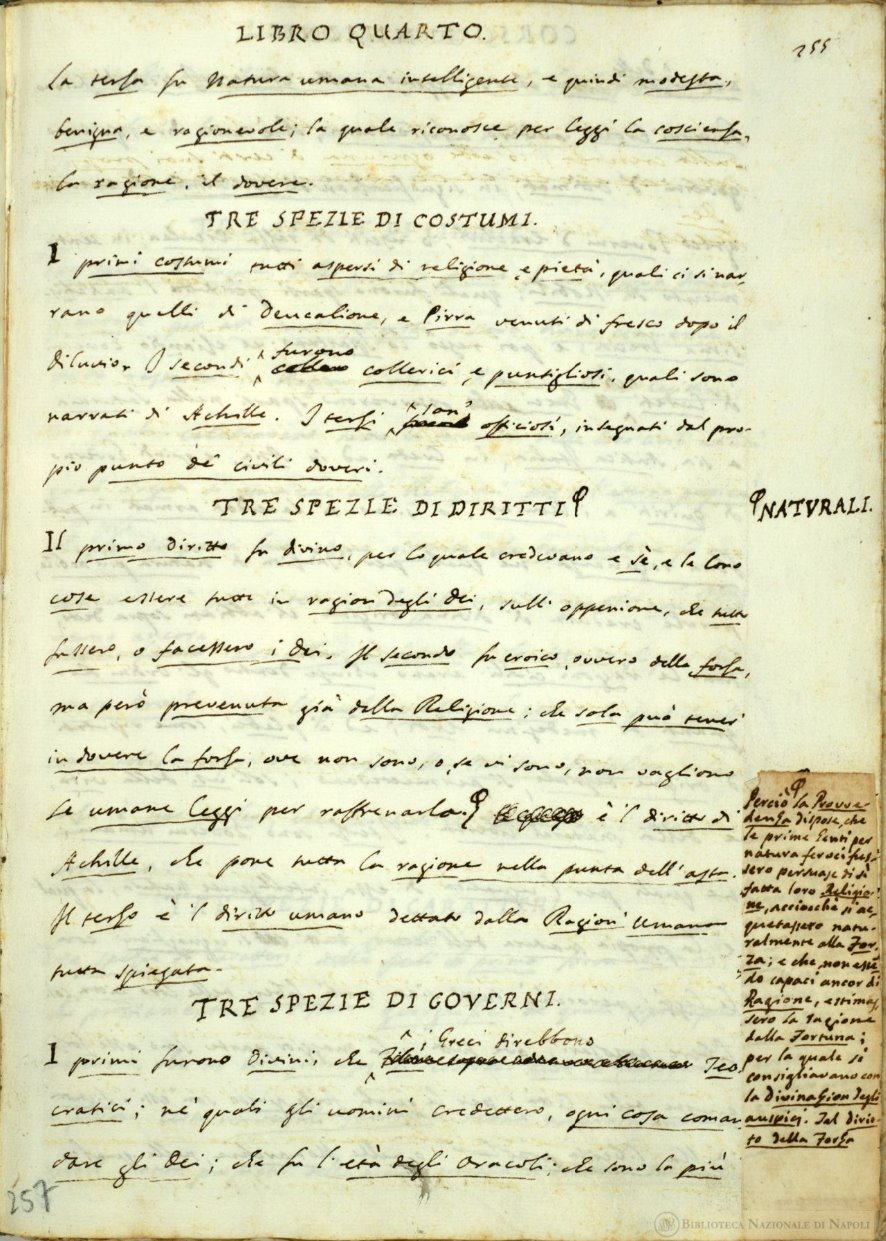 LIBRO QUARTO.
255
La terza fu Natura umana intelligente, e quindi modesta,
benigna, e ragionevole; la quale riconosce per leggi la coscienza,
la ragione, il dovere.
TRE SPEZIE DI COSTUMI.
I primi costumi tutti aspersi di religione, e pietà, quali ci si nar-
rano quelli di Deucalione, e Pirra venuti di fresco dopo il
diluvio. I secondi furono collerici, e puntigliosi, quali sono
narrati di Achille. I terzi son' officiosi, insegnati dal pro-
pio punto de' civili doveri.
TRE SPEZIE DI DIRITTI
NATURALI.
Il primo diritto fu divino, per lo quale credevano e sè, e le loro
cose essere tutte in ragion degli dei, sull' oppenione, che tutto
fussero, o facessero i dei. Il secondo fu eroico, ovvero della forza,
ma però prevenuta già dalla Religione; che sola può tener
in dovere la forza, ove non sono, o, se vi sono, non vagliono
le umane leggi per raffrenarla. è 'l diritto di
Achille, che pone tutta la ragione nella punta dell' asta.
Il terzo è 'l diritto umano dettato dalla Ragion' Umana
tutta spiegata.
TRE SPEZIE DI GOVERNI.
I primi furono Divini, che i Greci direbbono Teo-
cratici; ne' quali gli uomini credettero, ogni cosa coman
dare gli dei; che fu l'età degli oracoli; che sono la più
Perciò la Provve-
denza dispose, che
le prime Genti per
natura feroci fus-
sero persuase di sì
fatta loro Religio-
ne, acciocchè si ac-
quetassero natu-
ralmente alla For-
za; e che non essen
do capaci ancor di
Ragione, estimas-
sero la ragione
dalla Fortuna;
per la quale si
consigliavano con
la divinazion degli
auspicj. Tal dirit-
to della Forza
257
BIBLIOTECA NAZIONALE DI NAPOLI